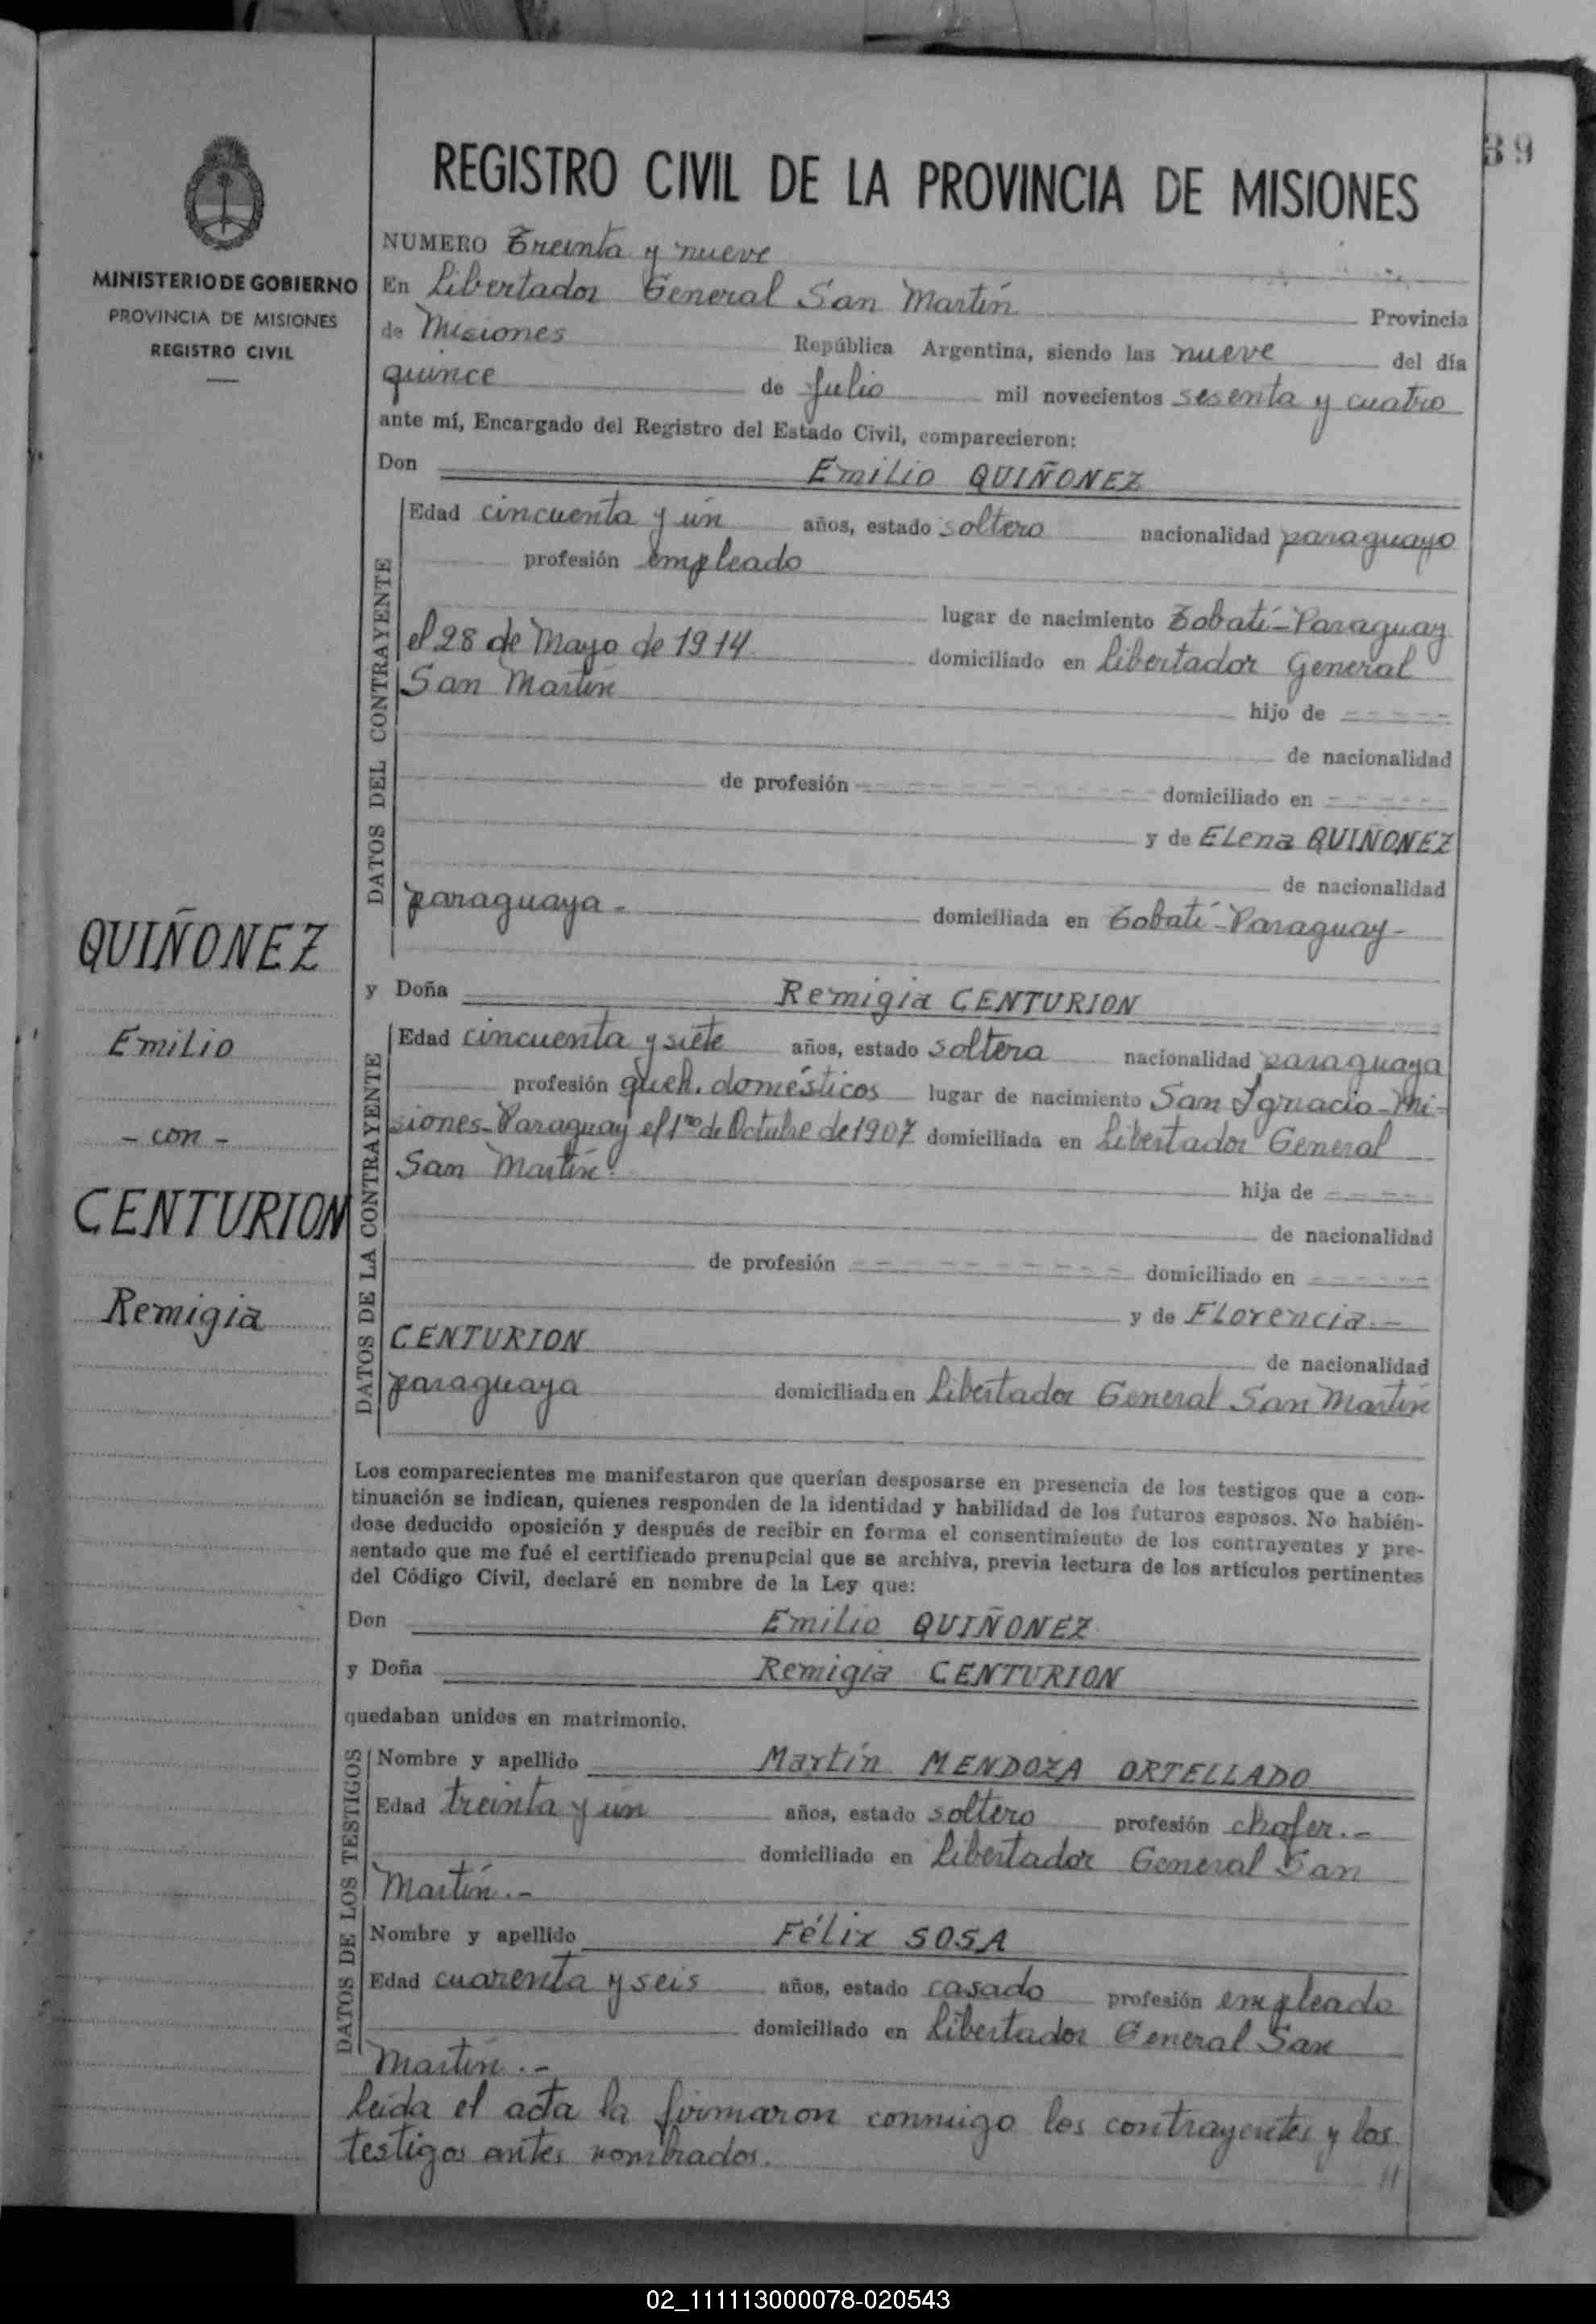 39
REGISTRO CIVIL DE LA PROVINCIA DE MISIONES
MINISTERIO DE GOBIERNO
PROVINCIA DE MISIONES
REGISTRO CIVIL
NUMERO Treinta y nueve
En Libertador General San Martín Provincia
de Misiones República Argentina, siendo las nueve del día
quince de Julio mil novecientos sesenta y cuatro
ante mí, Encargado del Registro del Estado Civil, comparecieron:
Don Emilio QUIÑONEZ
DATOS DEL CONTRAYENTE
Edad cincuenta y un años, estado soltero nacionalidad paraguayo
profesión empleado
lugar de nacimiento Tobatí-Paraguay
el 28 de Mayo de 1914 domiciliado en Libertador General
San Martín hijo de - - - - -
de nacionalidad
de profesión - - - - - - - - - domiciliado en - - - - - -
y de Elena QUIÑONEZ
de nacionalidad
paraguaya - domiciliada en Tobatí-Paraguay-
QUIÑONEZ
Emilio
- con -
CENTURION
Remigia
y Doña Remigia CENTURION
DATOS DE LA CONTRAYENTE
Edad cincuenta y siete años, estado soltera nacionalidad paraguaya
profesión queh. domésticos lugar de nacimiento San Ignacio-Mi-
siones-Paraguay el 1ro de Octubre de 1907 domiciliada en Libertador General
San Martín. hija de - - - - -
de nacionalidad
de profesión - - - - - - - - - domiciliado en - - - - - -
y de Florencia.-
CENTURION de nacionalidad
paraguaya domiciliada en Libertador General San Martín
Los comparecientes me manifestaron que querían desposarse en presencia de los testigos que a con-
tinuación se indican, quienes responden de la identidad y habilidad de los futuros esposos. No habién-
dose deducido oposición y después de recibir en forma el consentimiento de los contrayentes y pre-
sentado que me fué el certificado prenupcial que se archiva, previa lectura de los artículos pertinentes
del Código Civil, declaré en nombre de la Ley que:
Don Emilio QUIÑONEZ
y Doña Remigia CENTURION
quedaban unidos en matrimonio.
DATOS DE LOS TESTIGOS
Nombre y apellido Martín MENDOZA ORTELLADO
Edad treinta y un años, estado soltero profesión chofer.-
domiciliado en Libertador General San
Martín.-
Nombre y apellido Félix SOSA
Edad cuarenta y seis años, estado casado profesión empleado
domiciliado en Libertador General San
Martín.-
leída el acta la firmaron conmigo los contrayentes y los
testigos antes nombrados. //
02_111113000078-020543